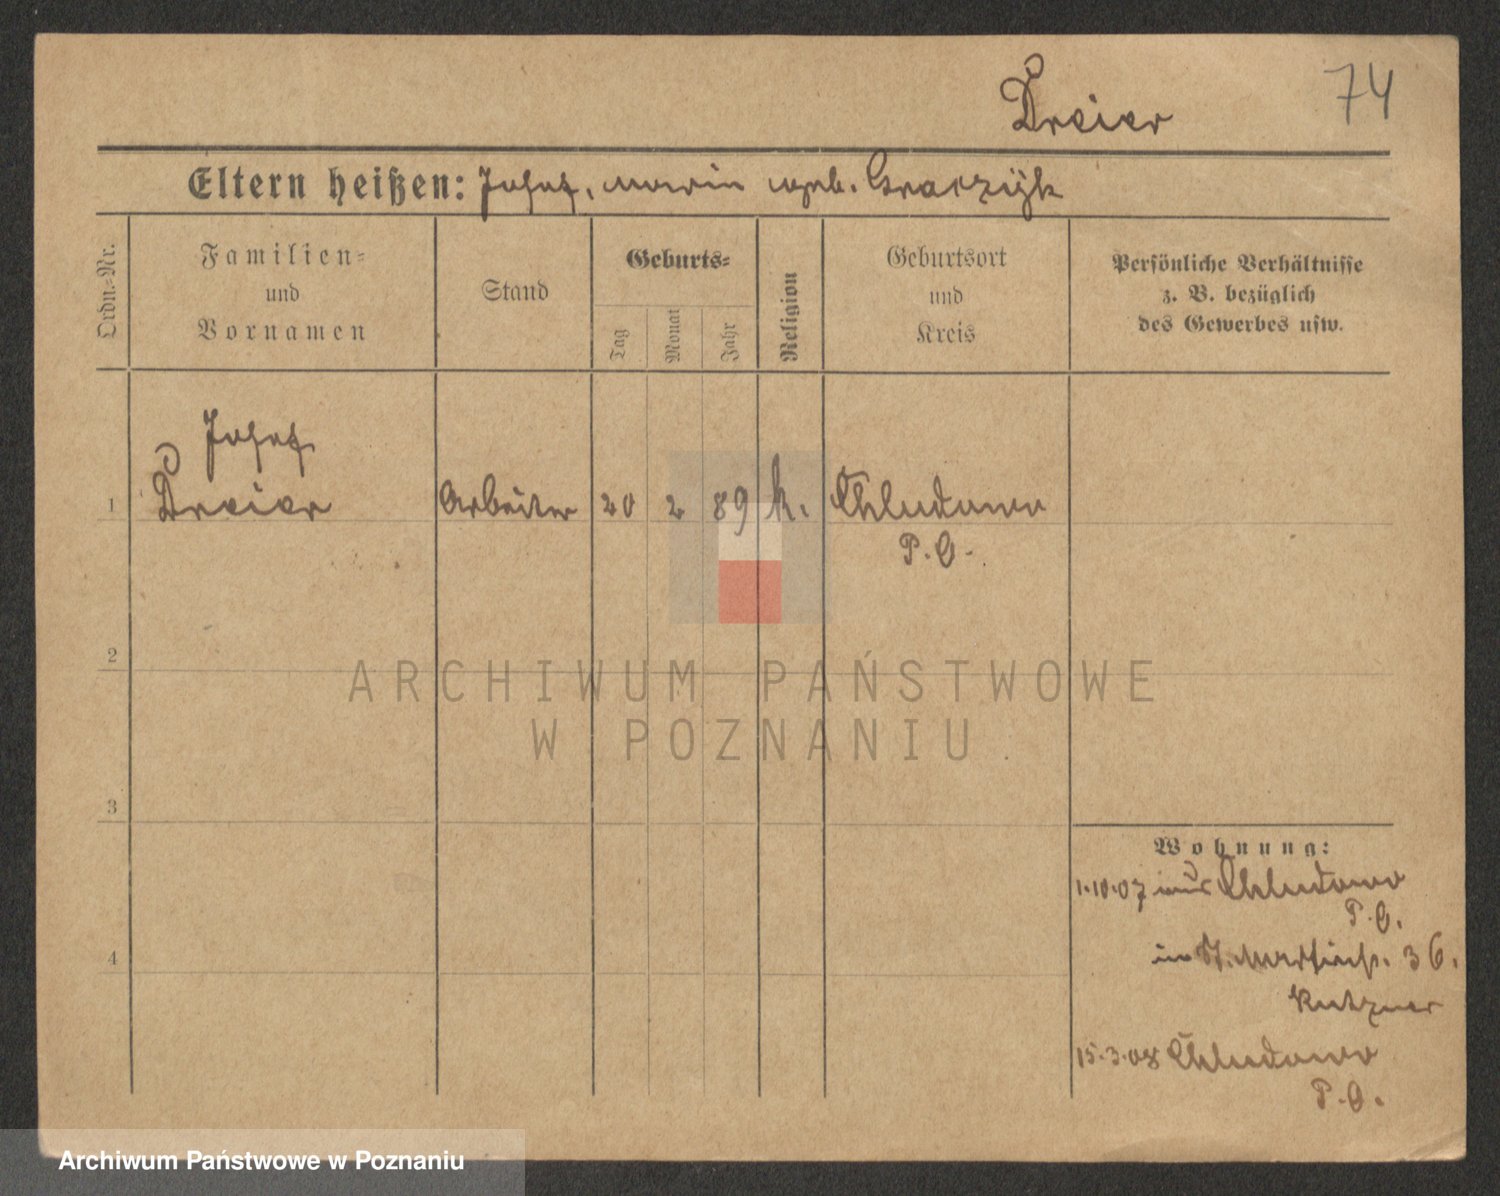 Dreier
74
Eltern heißen: Josef, Marie geb. Graczyk
Ordn.-Nr.
Familien-
und
Vornamen
Stand
Geburts-
Tag
Monat
Jahr
Religion
Geburtsort
und
Kreis
Persönliche Verhältnisse
z. B. bezüglich
des Gewerbes usw.
Josef
1 Dreier Arbeiter 20 2 89 k. Chludowo
P. O.
2
3
4
Wohnung:
1.10.07 aus Chludowo
P. O.
in St. Martinst. 36.
Kutzner
15.3.08 Chludowo
P. O.
ARCHIWUM PAŃSTWOWE
W POZNANIU
Archiwum Państwowe w Poznaniu